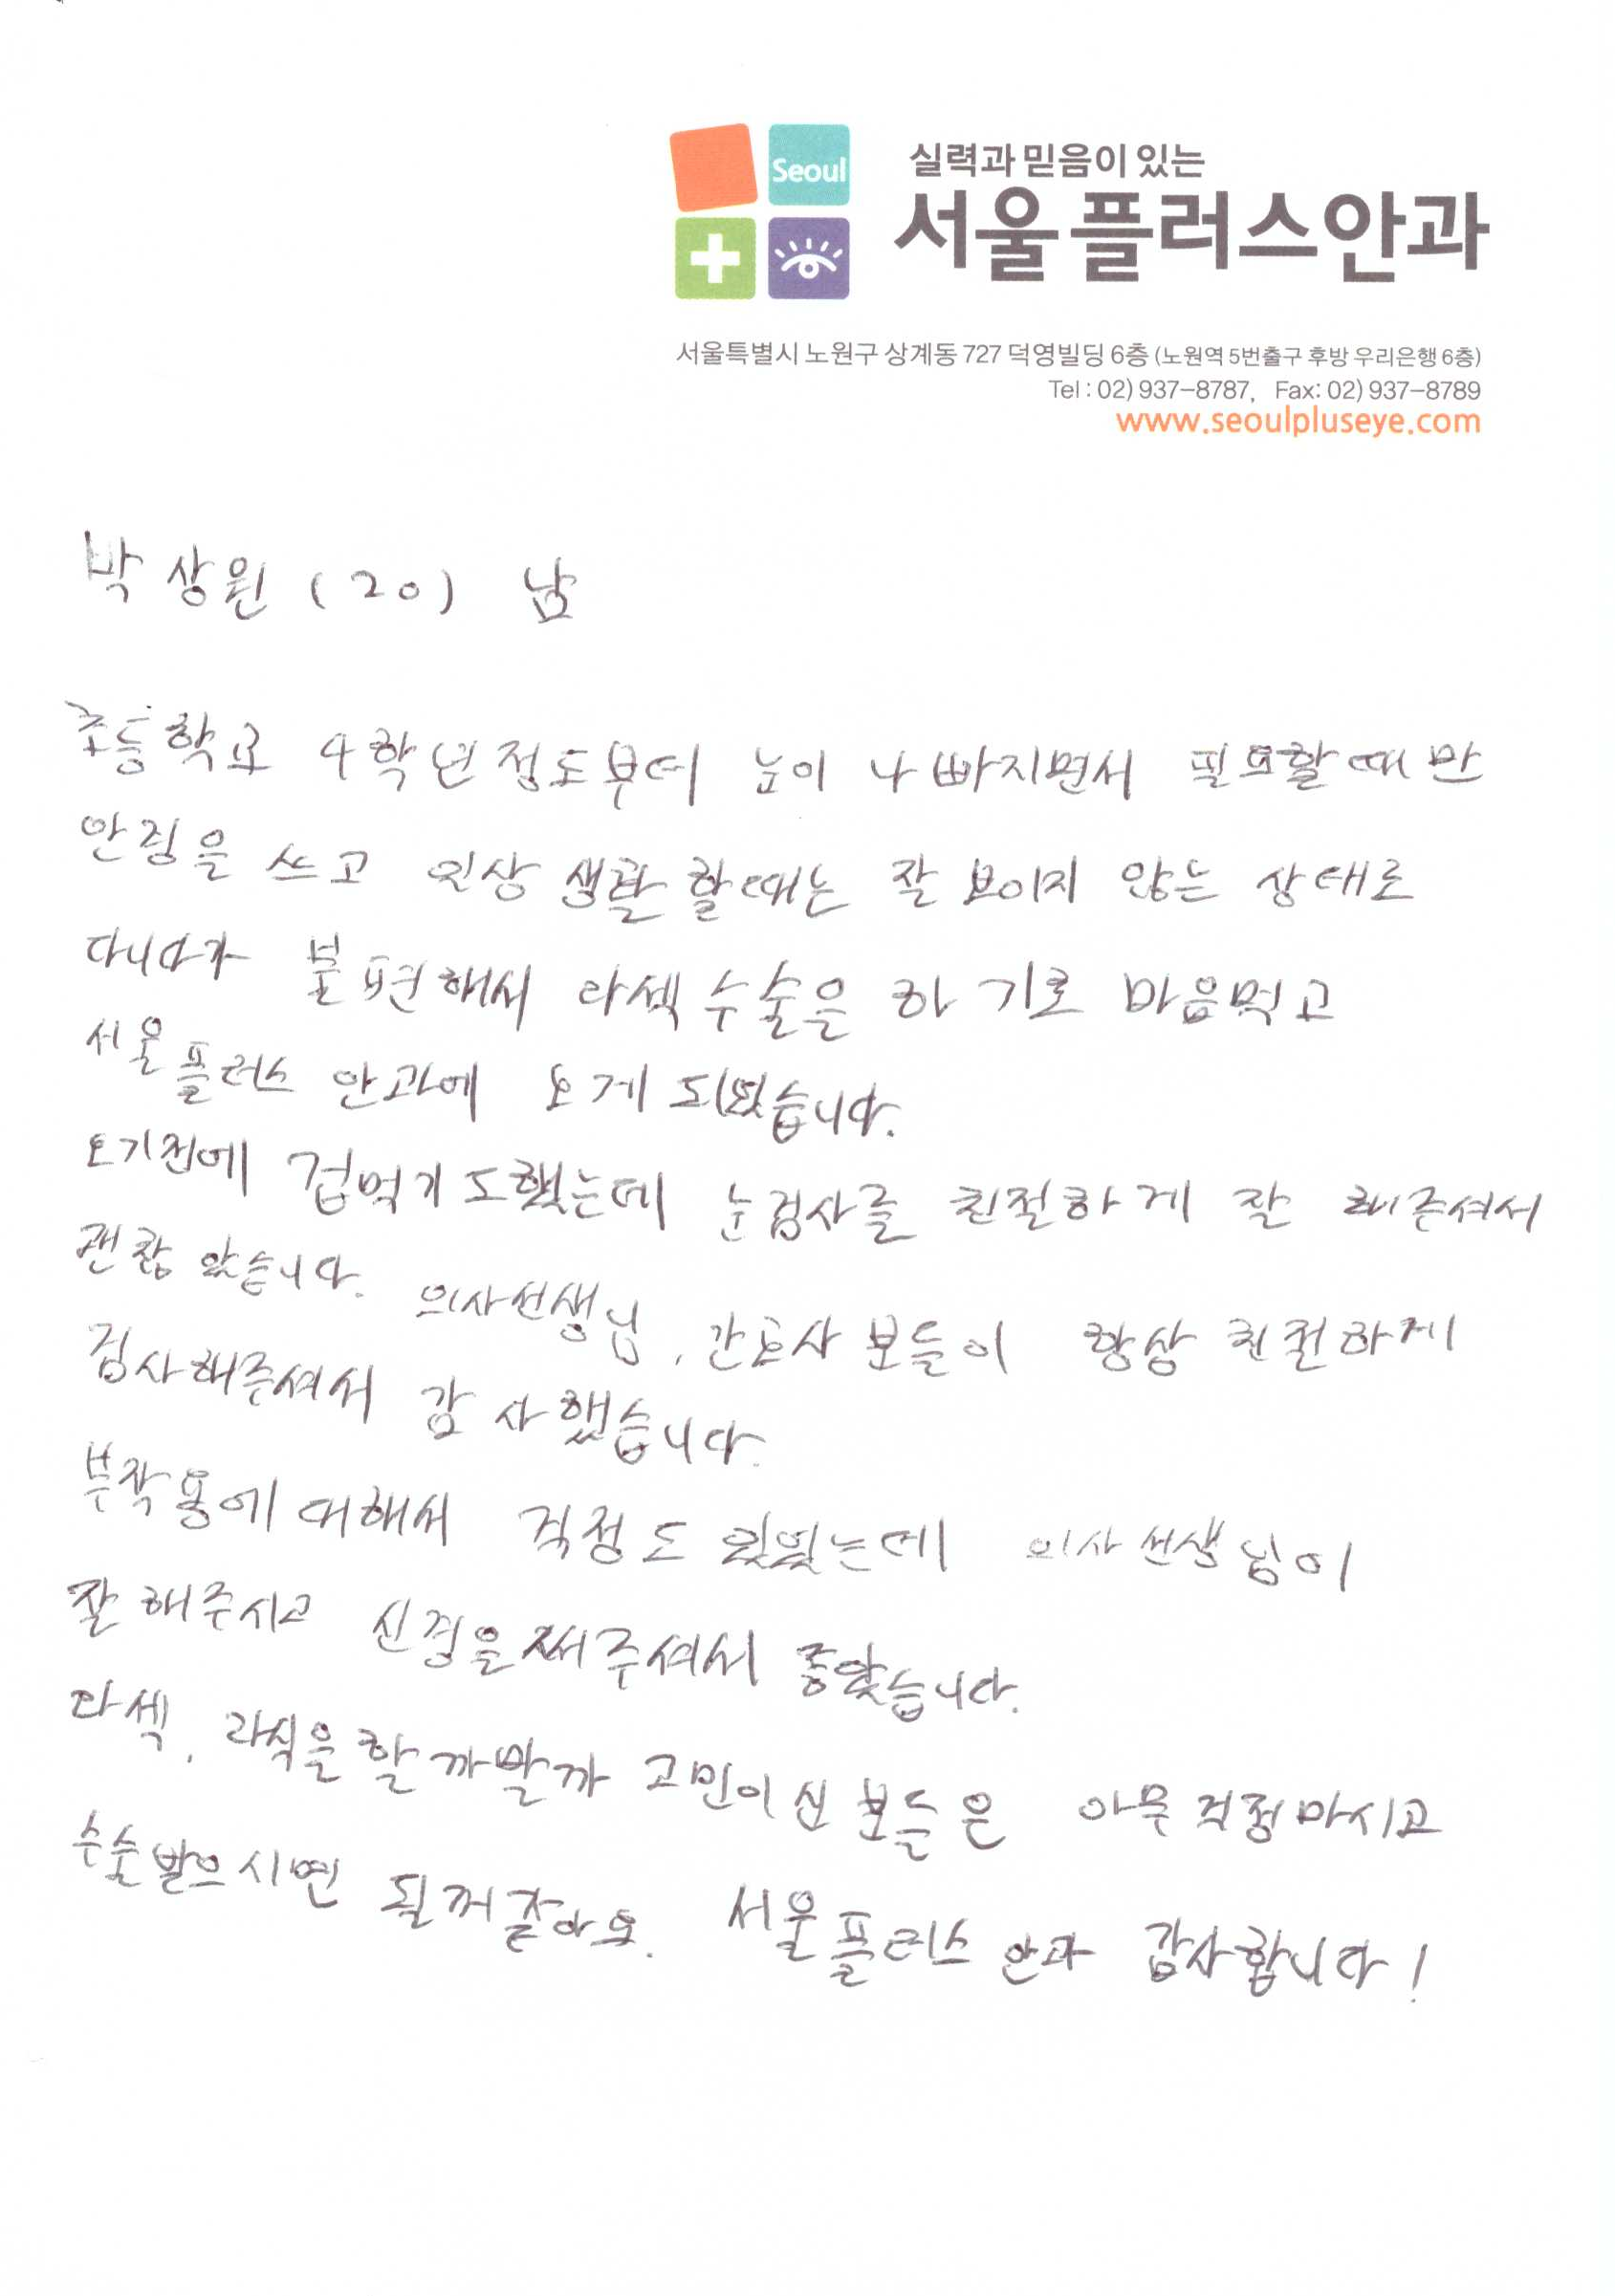 Seoul
실력과 믿음이 있는
서울플러스안과
서울특별시 노원구 상계동 727 덕영빌딩 6층 (노원역 5번출구 후방 우리은행 6층)
Tel : 02) 937-8787, Fax: 02) 937-8789
www.seoulpluseye.com
박상원 (20) 남
초등학교 4학년정도부터 눈이 나빠지면서 필요할때만
안경을 쓰고 일상 생활 할때는 잘 보이지 않는 상태로
다니다가 불편해서 라섹수술은 하기로 마음먹고
서울플러스 안과에 오게 되었습니다.
오기전에 겁먹기도했는데 눈검사를 친절하게 잘 해주셔서
괜찮았습니다. 의사선생님, 간호사 분들이 항상 친절하게
검사해주셔서 감사했습니다.
부작용에 대해서 걱정도 있었는데 의사선생님이
잘해주시고 신경을써주셔서 좋았습니다.
라섹, 라식을할까말까 고민이신분들은 아무걱정마시고
수술받으시면 될꺼같아요. 서울플러스안과 감사합니다!